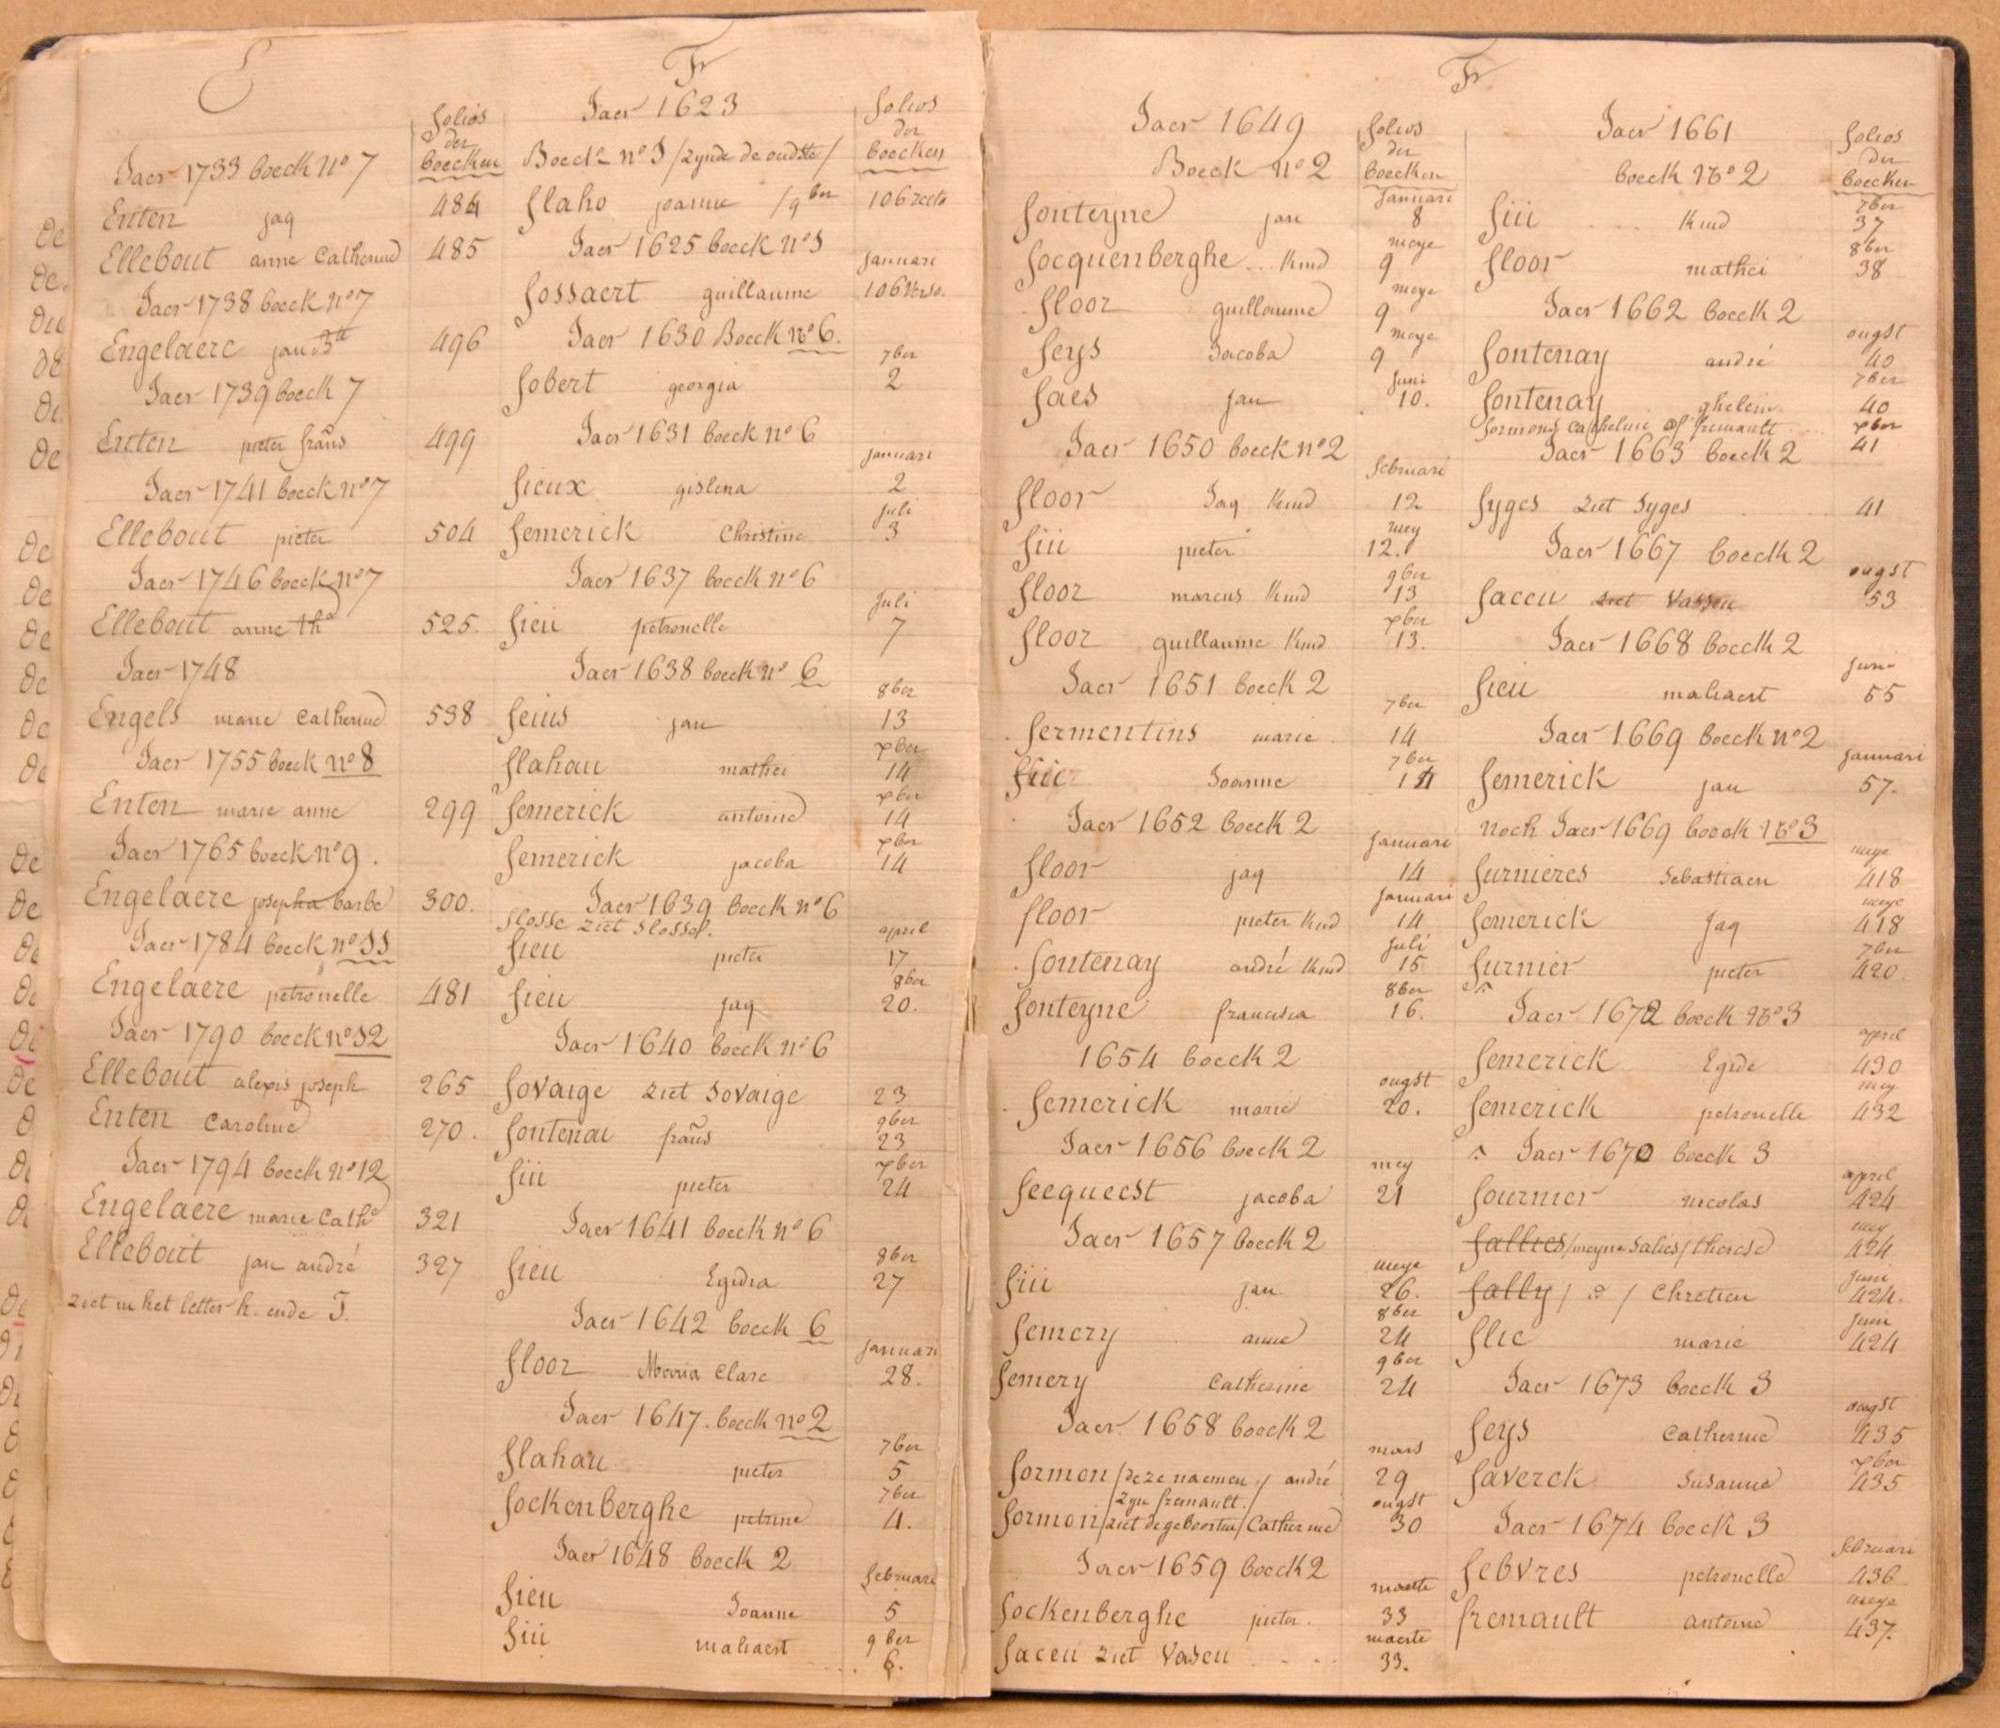 E
folios
der
boecken
Jaer 1733 boeck No 7
Enten jaq 484
Ellebout anne Catherine 485
Jaer 1738 boeck no 7
Engelaere jan 496
Jaer 1739 boeck 7
Enten pieter frans 499
Jaer 1741 boeck no 7
Ellebout pieter 504
Jaer 1746 boeck no 7
Ellebout anne 525.
Jaer 1748
Engels marie Catherine 538
Jaer 1755 boeck no 8
Enten marie anne 299
Jaer 1765 boeck no 9.
Engelaere josepha barbe 300.
Jaer 1784 boeck no 11
Engelaere petronelle 481
Jaer 1790 boeck no 12
Ellebout alexis joseph 265
Enten Caroline 270.
Jaer 1794 boeck no 12
Engelaere marie Cath 321
Ellebout jan andré 327
ziet in het letter h. ende J.
F
Jaer 1623
folios
der
boecken
Boeck no 1 /zynde de oudste/
flaho joanne /9ber 106 recto
Jaer 1625 boeck no 1
januari
fossaert guillaume 106 verso.
Jaer 1630 Boeck no 6.
7ber
fobert georgia 2
Jaer 1631 boeck no 6
januari
fieux gislena 2
juli
femerick Christine 3
Jaer 1637 boeck no 6
juli
fieu petronelle 7
Jaer 1638 boeck no 6
8ber
feius jan 13
xber
flahau mathei 14
xber
femerick antoine 14
xber
femerick jacoba 14
Jaer 1639 boeck no 6
flosse ziet slossel.
april
fieu pieter 17
8ber
fieu jaq 20.
Jaer 1640 boeck no 6
fovaige ziet Sovaige 23
9ber
fontenai frans 23
xber
fiu pieter 24
Jaer 1641 boeck no 6
8ber
fieu Egidia 27
Jaer 1642 boeck 6
januari
floor Maria Clare 28.
Jaer 1647. boeck no 2
7ber
flahau pieter 5
7ber
fockenberghe petrine 4.
Jaer 1648 boeck 2
februari
fieu Joanne 5
9ber
fiu maliaert 6.
F
Jaer 1649
folios
der
boecken
Boeck no 2
januari
fonteyne jan 8
meye
focquenberghe ... kind 9
meye
floor guillaume 9
meye
feys Jacoba 9
juni
faes jan 10.
Jaer 1650 boeck no 2
februari
floor Jaq kind 12
mey
fiu pieter 12.
9ber
floor marcus kind 13
xber
floor guillaume kind 13.
Jaer 1651 boeck 2
7ber
fermentins marie 14
7ber
Joanne 14
Jaer 1652 boeck 2
januari
floor jaq 14
januari
floor pieter kind 14
juli
fontenay andré kind 15
8ber
fonteyne francisca 16.
1654 boeck 2
ougst
femerick marie 20.
Jaer 1656 boeck 2
mey
fecqueest jacoba 21
Jaer 1657 boeck 2
meye
fiu jan 26.
8ber
femery anne 24
9ber
femery Catherine 24
Jaer 1658 boeck 2
mars
formon /deze naemen / andré 29
/zyn fremault./
ougst
formon /ziet de geboorten/ Catherine 30
Jaer 1659 boeck 2
maerte
fockenberghe pieter. 33
maerte
faceu ziet Vaseu 33.
F
Jaer 1661
folios
der
boecken
boeck No 2
7ber
fiu ... kind 37
8ber
floor mathei 38
Jaer 1662 boeck 2
ougst
fontenay andré 40
7ber
fontenay ghelein 40
xber
formons catheline of fremault 41
Jaer 1663 boeck 2
fyges ziet Syges 41
Jaer 1667 boeck 2
ougst
faceu ziet Vasseu 53
Jaer 1668 boeck 2
juni
fieu maliaert 55
Jaer 1669 boeck no 2
januari
femerick jan 57.
noch Jaer 1669 boeck No 3
meye
furnieres Sebastiaen 418
meye
femerick Jaq 418
7ber
furnier pieter 420.
Jaer 1672 boeck No 3
april
femerick Egide 430
mey
femerick petronelle 432
Jaer 1670 boeck 3
april
fournier nicolas 424
mey
fallies /meyne Salies/ therese 424
juni
fally / / Chretien 424.
juni
flie marie 424
Jaer 1673 boeck 3
ougst
feys Catherine 435
xber
faverck Susanne 435.
Jaer 1674 boeck 3
februari
febvres petronelle 436
meye
fremault antoine 437.